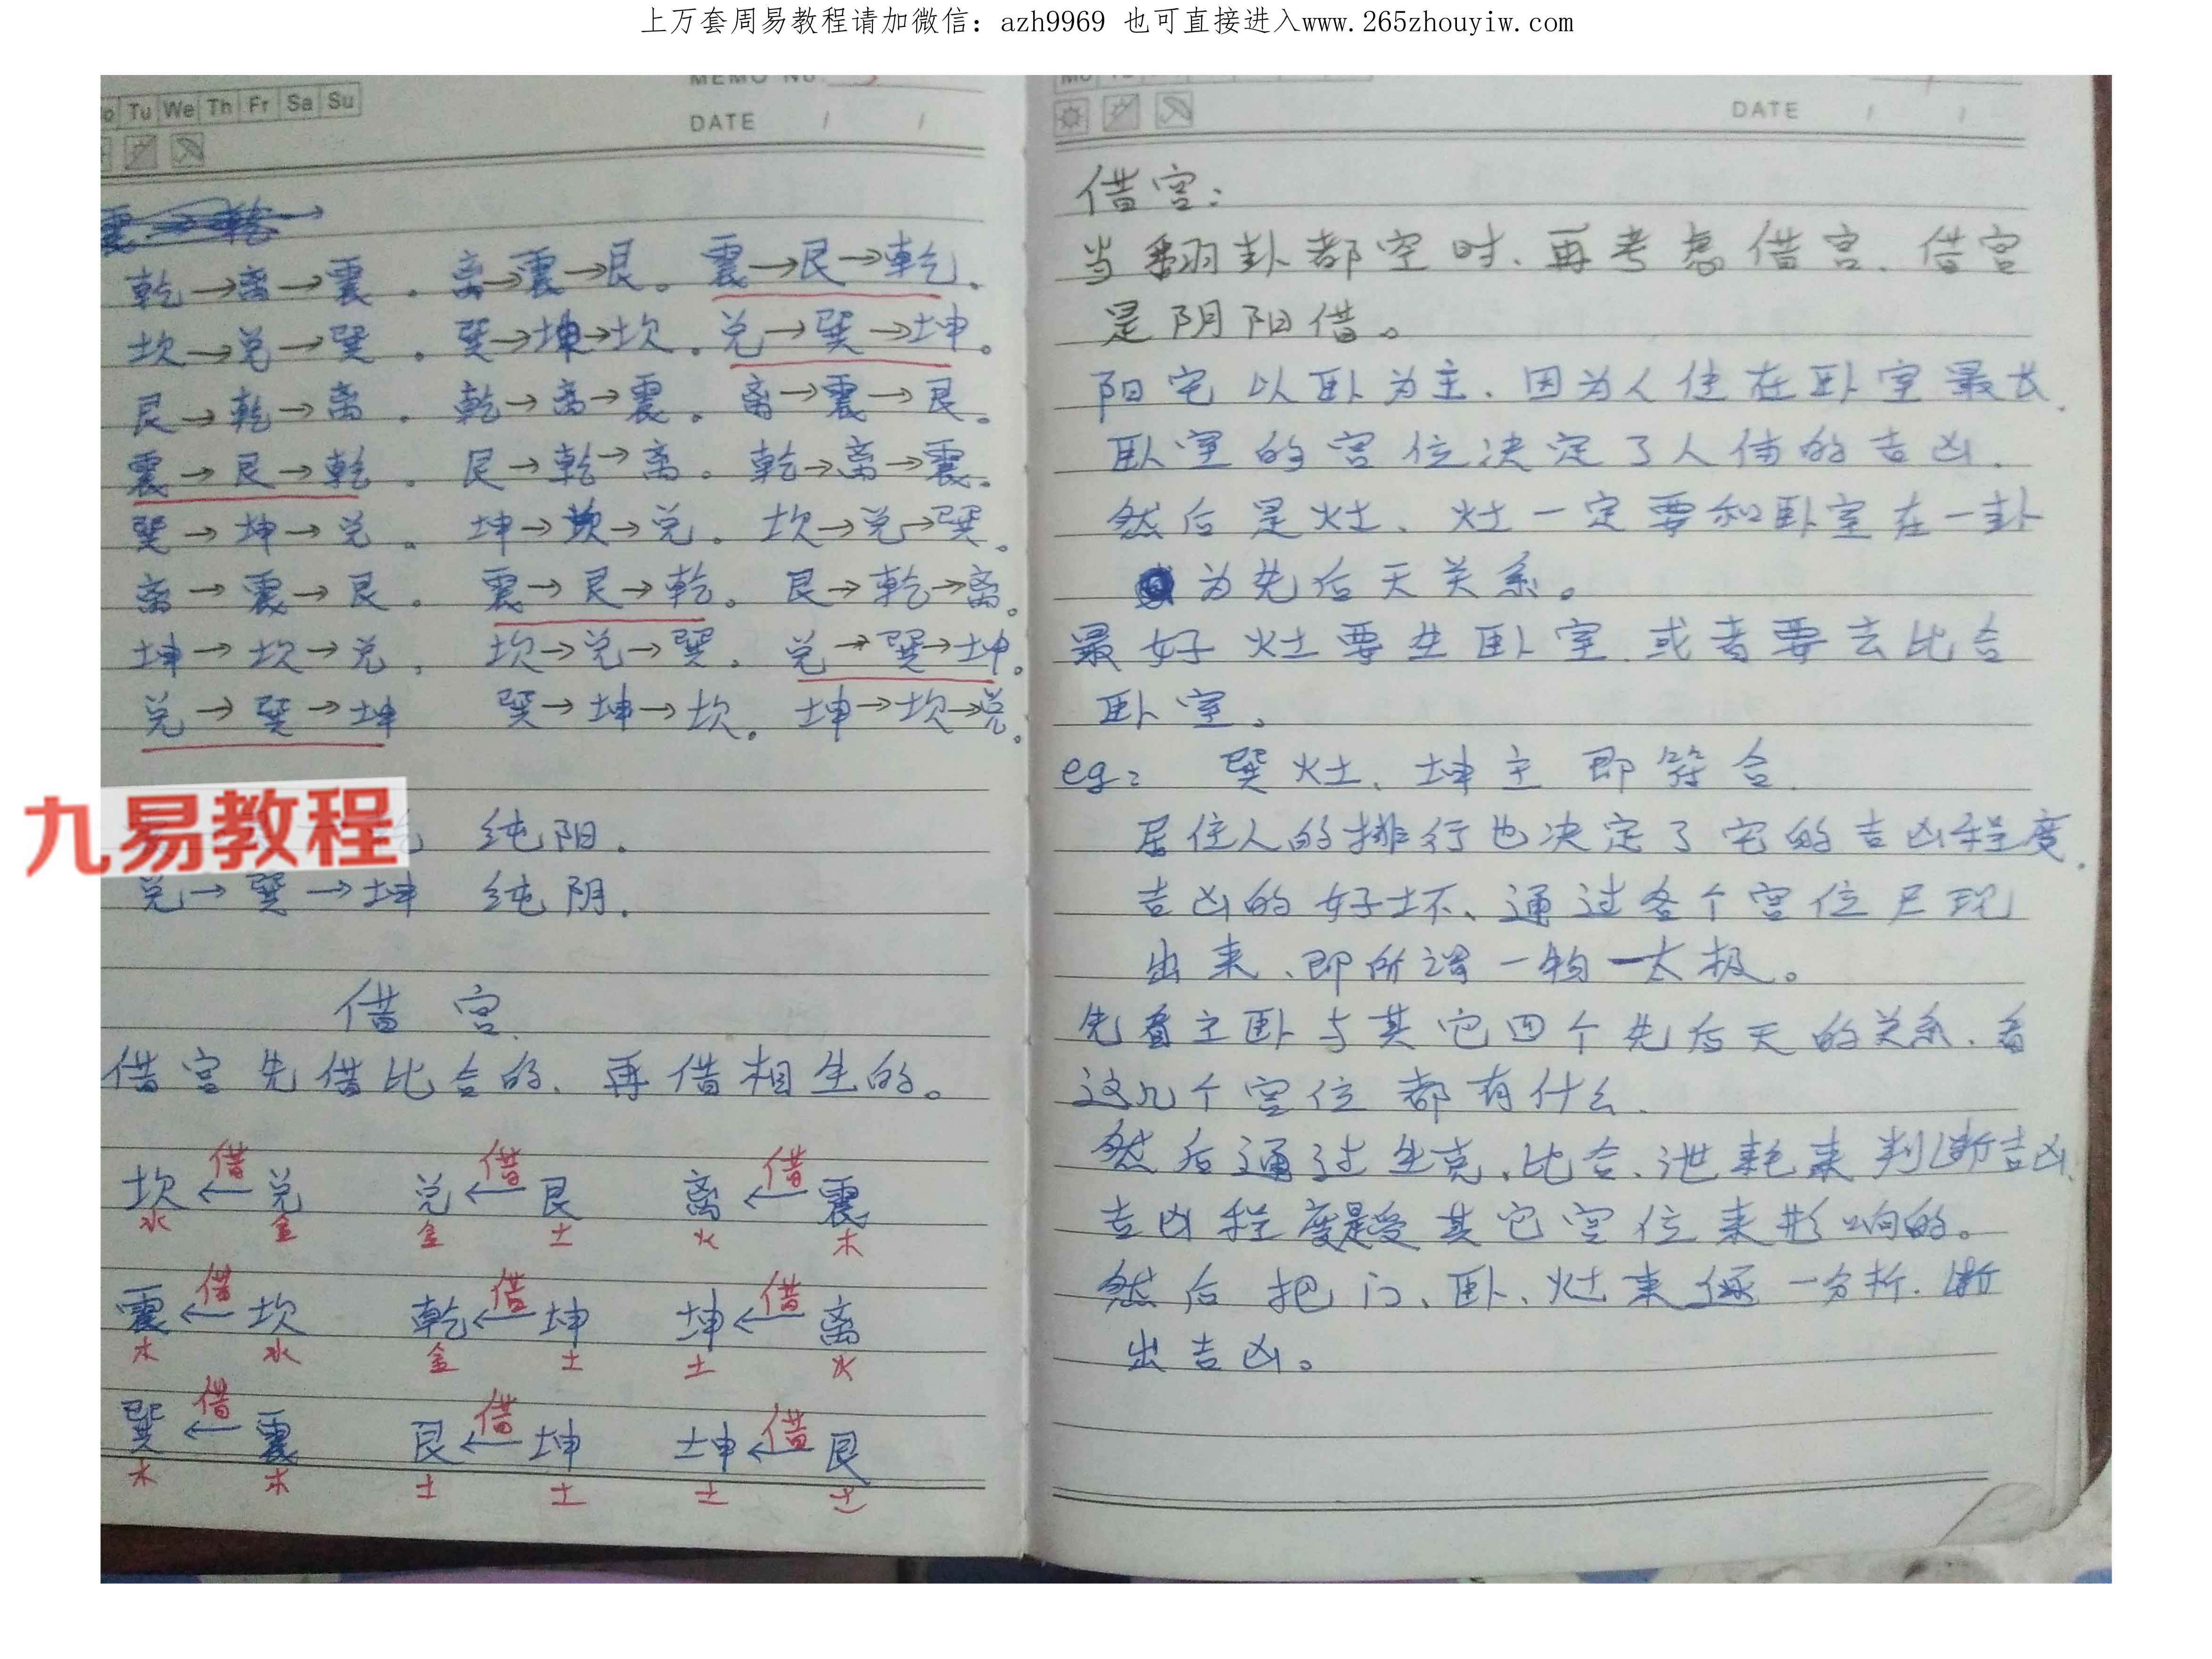 上万套周易教程请加微信：azh9969 也可直接进入www.265zhouyiw.com
Tu We Th Fr Sa Su
MEMO No. 3
DATE / /
乾→离→震． 离→震→艮。 震→艮→乾．
坎→兑→巽． 巽→坤→坎． 兑→巽→坤。
艮→乾→离． 乾→离→震。 离→震→艮。
震→艮→乾． 艮→乾→离。 乾→离→震。
巽→坤→兑。 坤→坎→兑。 坎→兑→巽。
离→震→艮． 震→艮→乾。 艮→乾→离。
坤→坎→兑． 坎→兑→巽． 兑→巽→坤。
兑→巽→坤 巽→坤→坎。 坤→坎→兑。
九易教程
纯阳．
兑→巽→坤 纯阴．
借宫．
借宫先借比合的、再借相生的。
借 借 借
坎←兑 兑←艮 离←震
水 金 金 土 火 木
借 借 借
震←坎 乾←坤 坤←离
木 水 金 土 土 火
借 借 借
巽←震 艮←坤 坤←艮
木 木 土 土 土 土
DATE / /
借宫：
当翻卦都空时、再考虑借宫．借宫
是阴阳借。
阳宅以卧为主．因为人住在卧室最长．
卧室的宫位决定了人体的吉凶．
然后是灶、灶一定要和卧室在一卦
为先后天关系。
最好灶要生卧室．或者要去比合
卧室。
eg： 巽灶、坤主即符合．
居住人的排行也决定了宅的吉凶程度．
吉凶的好坏、通过各个宫位尸现
出来、即所谓一物一太极。
先看主卧与其它四个先后天的关系．看
这几个宫位都有什么．
然后通过生克、比合、泄耗来判断吉凶．
吉凶程度是受其它宫位来影响的。
然后把门、卧、灶来逐一分析．断
出吉凶。